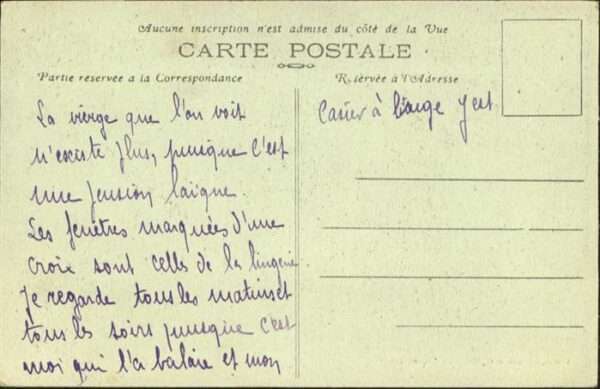 Aucune inscription n'est admise du côté de la Vue
CARTE POSTALE
Partie réservée a la Correspondance
Réservée à l'Adresse
La vierge que l'on voit
n'existe plus, puisque c'est
une pension laïque.
Les fenêtres marquées d'une
croix sont celles de la lingerie
je regarde tous les matins et
tous les soirs puisque c'est
moi qui l'a balaie et mon
Casier à linge y est